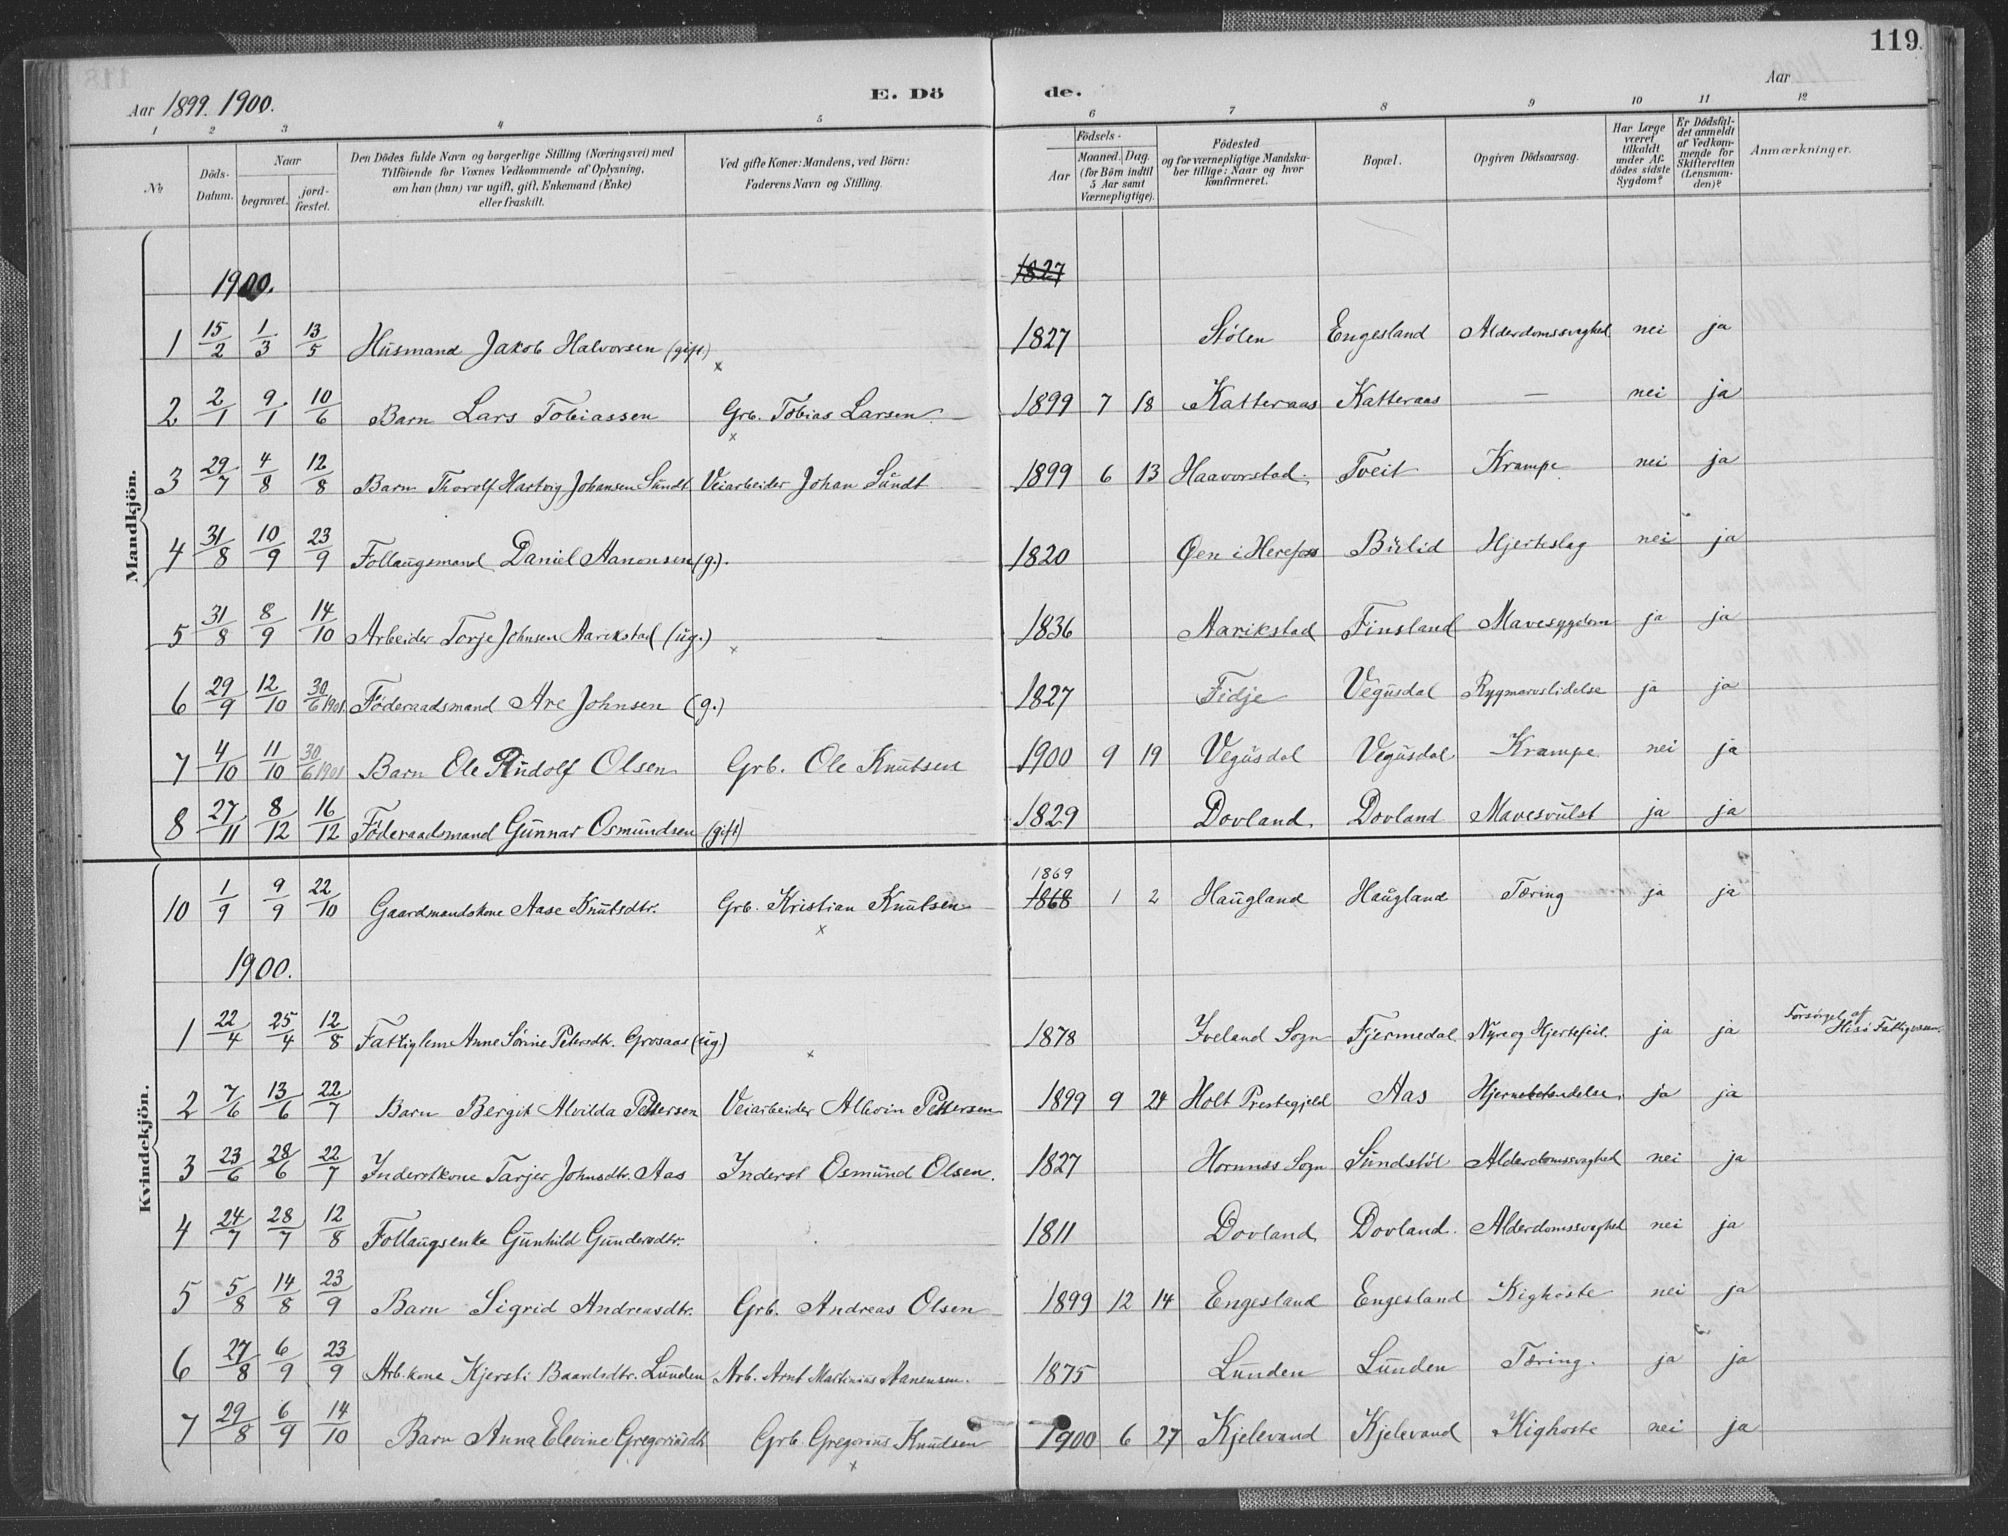 119.
Aar 1899. 1900.
E. Dö
de.
Aar
1 2 3 4 5 6 7 8 9 10 11 12
No
Döds-Datum.
Naar
begravet.
jord-fæstet.
Den Dödes fulde Navn og borgerlige Stilling (Næringsvei) med Tilföiende for Voxnes Vedkommende af Oplysning, om han (hun) var ugift, gift, Enkemand (Enke) eller fraskilt.
Ved gifte Koner: Mandens, ved Börn: Faderens Navn og Stilling.
Födsels-
Aar
Maaned. Dag. (for Börn indtil 5 Aar samt Værnepligtige).
Födested og for værnepligtige Mandskaber tillige: Naar og hvor konfirmeret.
Bopæl.
Opgiven Dödsaarsag.
Har Læge været tilkaldt under Afdödes sidste Sygdom?
Er Dödsfaldet anmeldt af Vedkommende for Skifteretten (Lensmanden)?
Anmærkninger.
Mandkjön.
1900. 1827
1 15/2 1/3 13/5 Husmand Jakob Halvorsen (gift) x 1827 Stølen Engesland Alderdomssvaghed nei ja
2 2/1 9/1 10/6 Barn Lars Tobiassen Grb. Tobias Larsen. x 1899 7 18 Katteraas Katteraas — nei ja
3 29/7 4/8 12/8 Barn Thorolf Hartvig Johansen Sundt Veiarbeider Johan Sundt 1899 6 13 Haavorstad Tveit Krampe nei ja
4 31/8 10/9 23/9 Follaugsmand Daniel Aanonsen (g.). 1820 Øen i Herefoss Bulid Hjerteslag nei ja
5 31/8 8/9 14/10 Arbeider Torje Johnsen Aarikstad (ug.) x 1836 Aarikstad Finsland Mavesygdom ja ja
6 29/9 12/10 30/6 1901 Föderaadsmand Are Johnsen (g.) 1827 Fidje Vegusdal Rygmarvslidelse ja ja
7 4/10 11/10 30/6 1901 Barn Ole Rudolf Olsen Grb. Ole Knutsen 1900 9 19 Vegusdal Vegusdal Krampe nei ja
8 27/11 8/12 16/12 Föderaadsmand Gunnar Osmundsen (gift) 1829 Dovland Dovland Mavesvulst ja ja
Kvindekjön.
10 1/9 9/9 22/10 Gaardmandskone Aase Knutsdtr. Grb. Kristian Knutsen x 1869 1868 1 2 Haugland Haugland Tæring ja ja
1900.
1 22/4 25/4 12/8 Fattiglem Anne Sørine Petersdtr. Grosaas (ug) x 1878 Iveland Sogn Fjermedal Nyre og Hjertefeil. ja ja Forsørget af Hisø Fattigvæsen.
2 7/6 13/6 22/7 Barn Bergit Alvilda Pettersen Veiarbeider Alberin Pettersen 1899 9 24 Holt Prestegjeld Aas Hjernebetændelse. ja ja
3 23/6 28/6 22/7 Inderstkone Tarjer Johnsdtr. Aas Inderst Osmund Olsen. 1827 Hornnes Sogn Sundstøl Alderdomssvaghed nei ja
4 24/7 28/7 12/8 Follaugsenke Gunhild Gundersdtr. 1811 Dovland Dovland. Alderdomssvaghed nei ja
5 5/8 14/8 23/9 Barn Sigrid Andreasdtr. Grb. Andreas Olsen 1899 12 14 Engesland Engesland Kighoste nei ja
6 27/8 6/9 23/9 Arb.kone Kjersti Baardsdtr. Lunden Arb. Arnt Martinius Aanensen. 1875 Lunden Lunden Tæring. ja ja
7 29/8 6/9 14/10 Barn Anna Elevine Gregoriusdtr Grb. Gregorius Knudsen x 1900 6 27 Kjelevand Kjelevand Kighoste nei ja